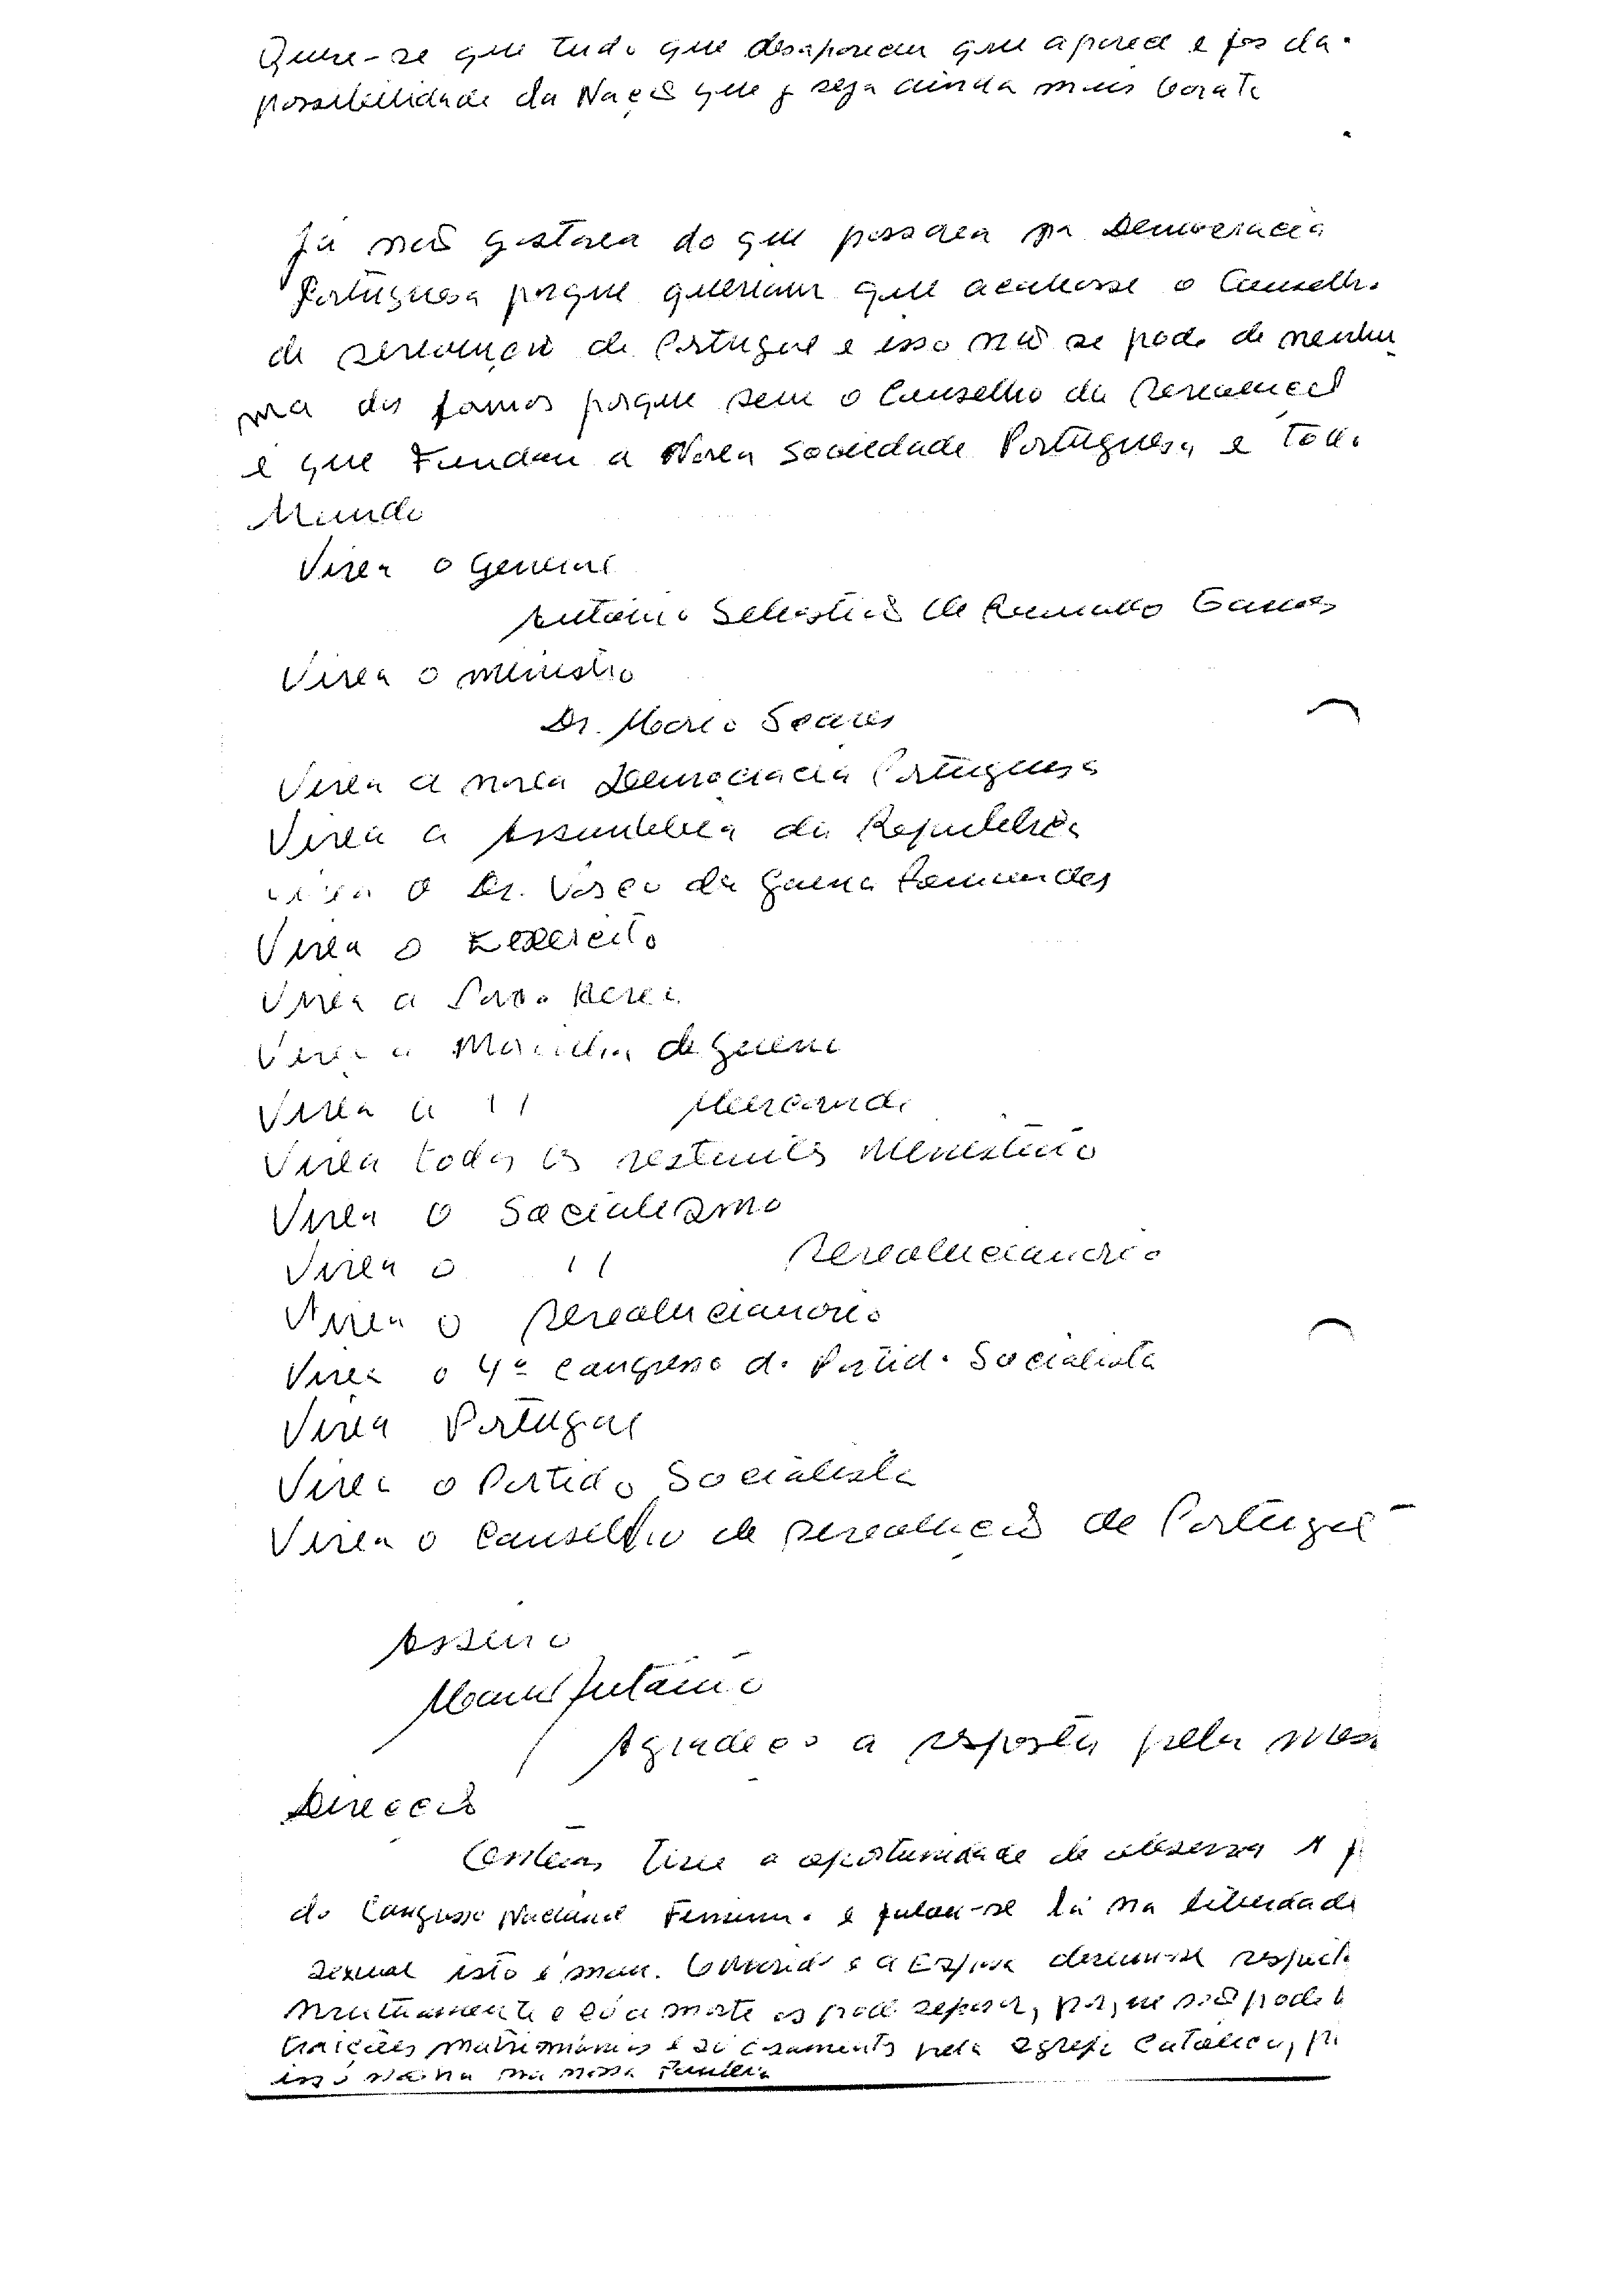 Quere-se que tudo que desapareceu que aparece e fos da
possibilidade da Nação que seja ainda mais barata
Já não gostava do que passava na Democracia
Portuguesa porque queriam que acabasse o Conselho
da revolução de Portugal e isso não se pode de nenhu
ma das formas porque sem o Conselho da Revolução
é que Fundou a Nova Sociedade Portuguesa e todo
Mundo
Viva o General
António Sebastião de Ramalho Eanes
Viva o ministro
Dr. Mario Soares
Viva a nova Democracia Portuguesa
Viva a Assembleia da Republica
Viva o Dr. Vasco da Gama Fernandes
Viva o Exercito
Viva a Força Aerea
Viva a Marinha de guerra
Viva a 11 Mercand
Viva todos os restantes Menisterio
Viva o Socialismo
Viva o 11 Revolucionario
Viva o Revolucionario
Viva o 4º Congresso do Partido Socialista
Viva Portugal
Viva o Partido Socialista
Viva o Conselho da revolução de Portugal
Assino
Manuel António
Agradeço a resposta pela nossa
Direcção
tive a oportunidade de observar
do Congresso Nacional Feminino e falou-se lá na liberdade
sexual isto é mau. O marido e a Esposa devem-se respeito
Mutuamente e só a morte os pode separar, porque não pode
traições matrimóniais e só casamento pela Egreja Catolica,
isso na nossa Familia